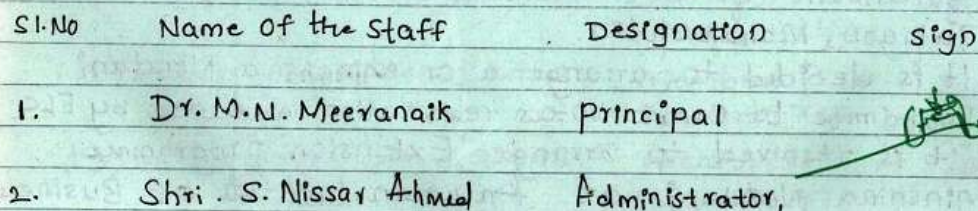 Sl.No Name of the Staff Designation sign
1. Dr. M.N. Meeranaik Principal
2. Shri. S. Nissar Ahmed Administrator,